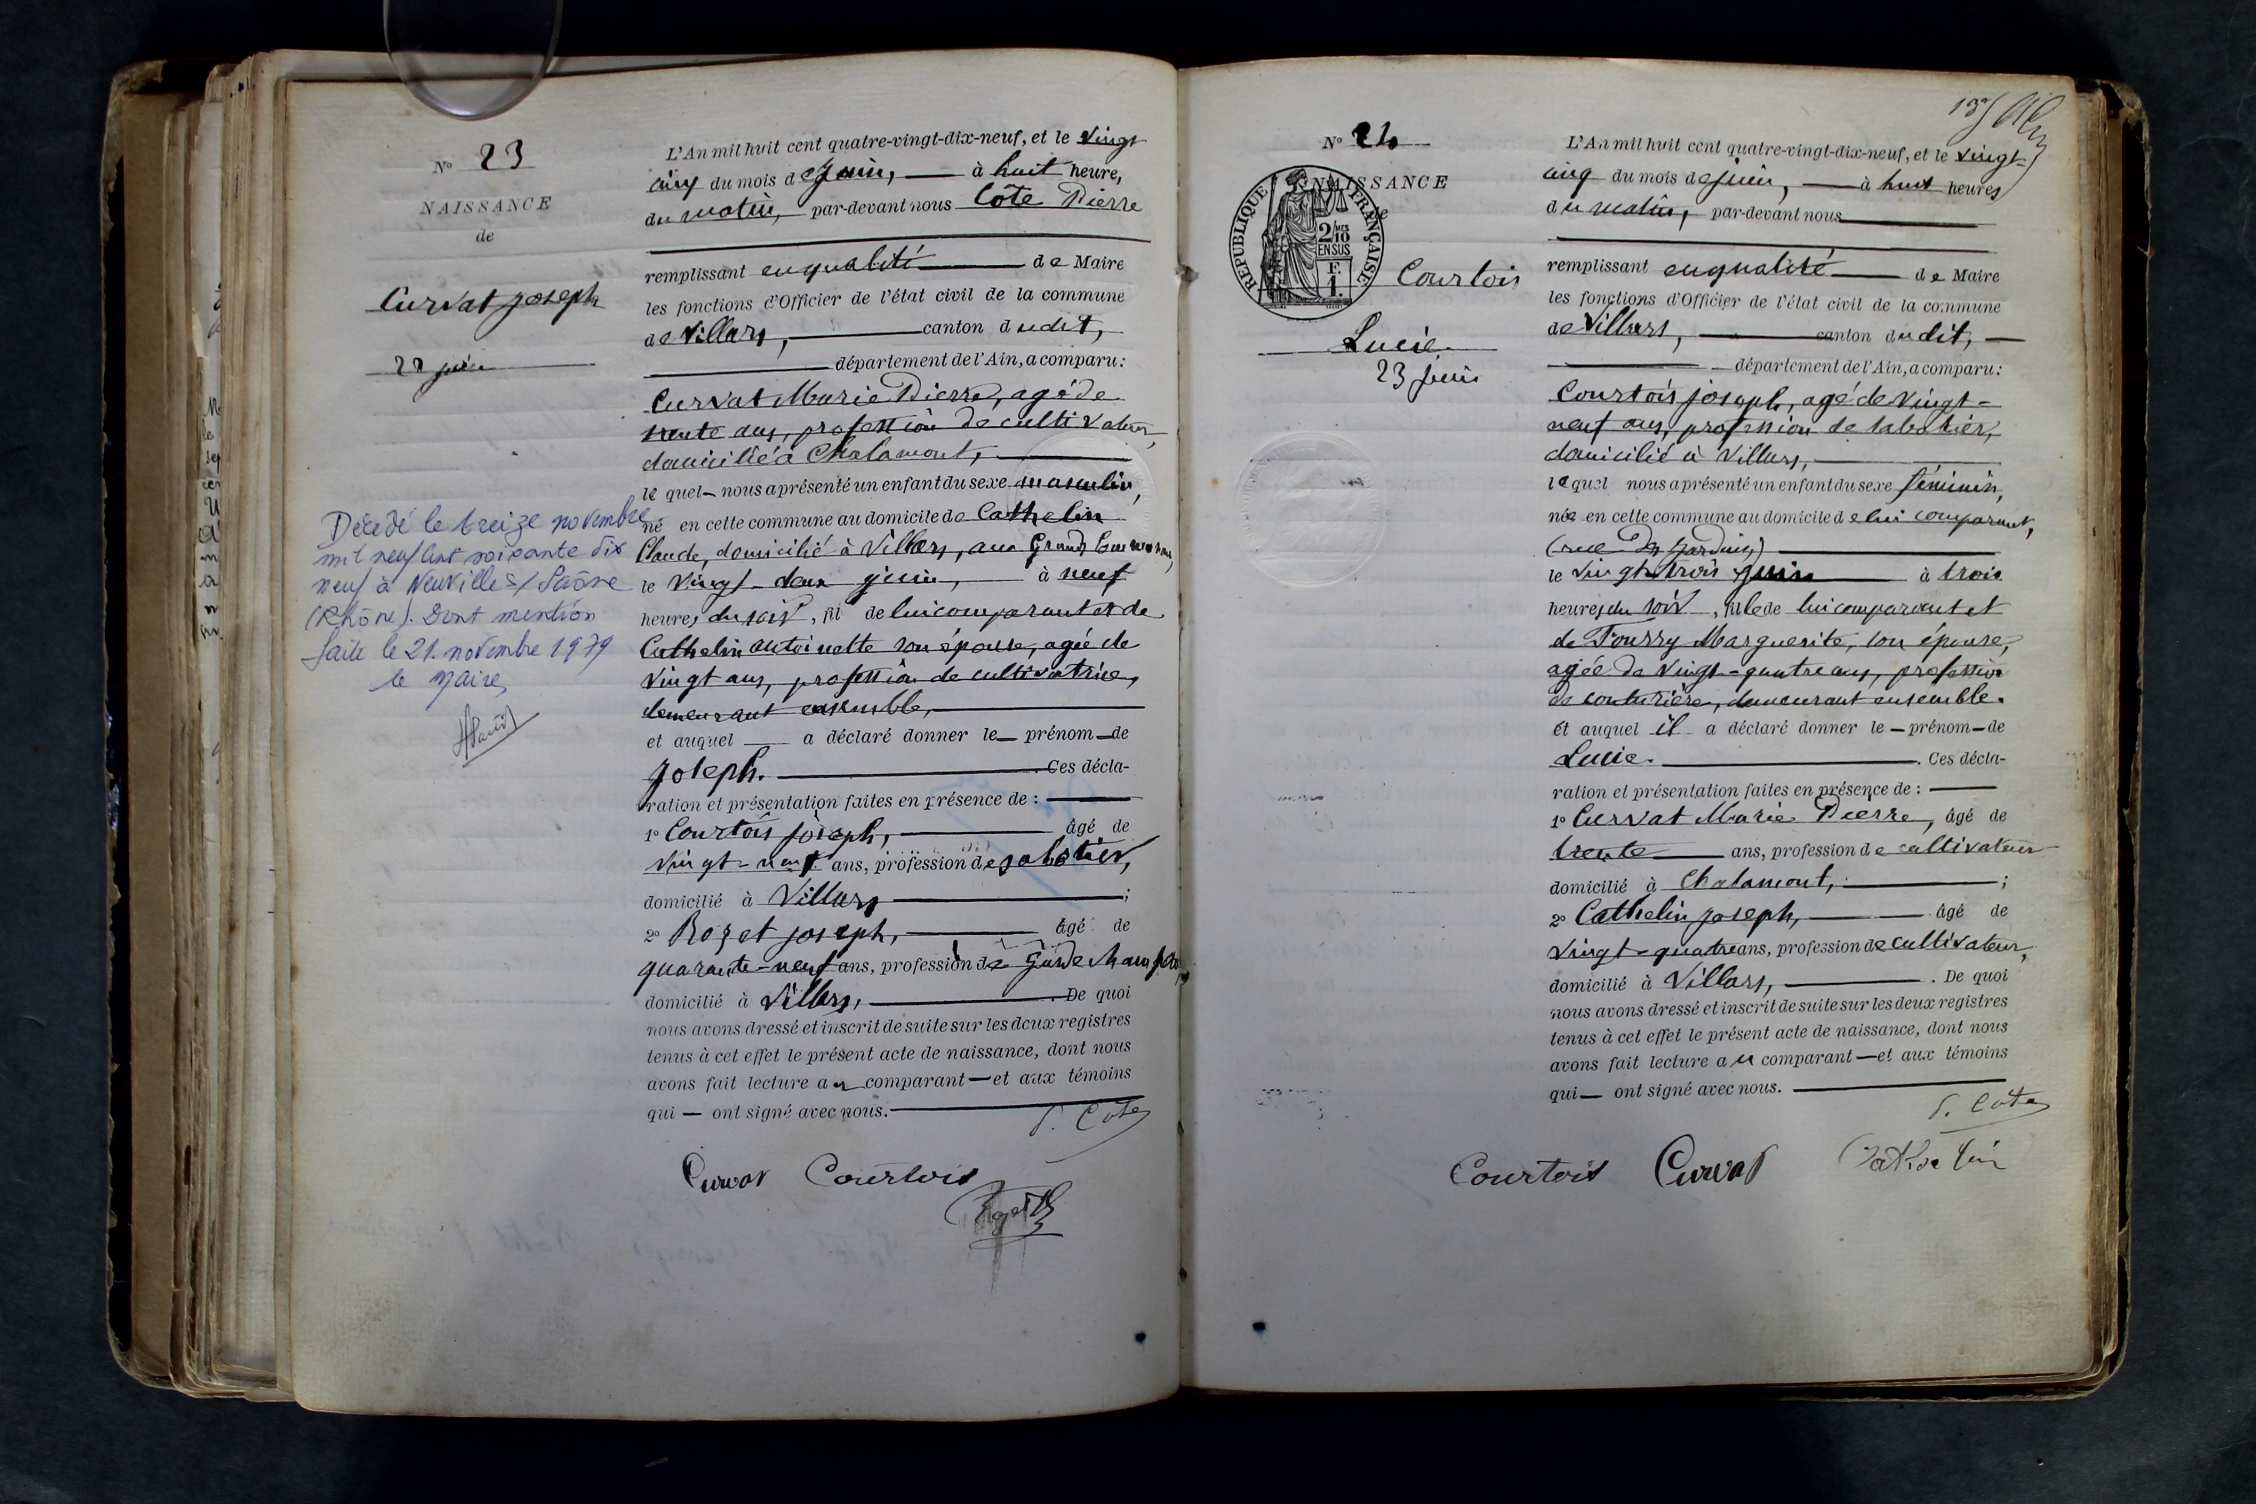 N° 23
NAISSANCE
de
Curvat Joseph
22 juin
Décédé le treize novembre
mil neuf cent soixante dix
neuf à Neuville s/ Saône
(Rhône). Dont mention
faite le 21 novembre 1979
le Maire,
L'An mil huit cent quatre-vingt-dix-neuf, et le vingt
cinq du mois de Juin, à huit heure,
du matin, par-devant nous Côte Pierre
remplissant en qualité de Maire
les fonctions d'Officier de l'état civil de la commune
de Villars, canton dudit,
département de l'Ain, a comparu :
Curvat Marie Pierre, agé de
trente ans, profession de cultivateur,
domicilié à Chalamont,
le quel nous a présenté un enfant du sexe masculin,
né en cette commune au domicile de Cathelin
Claude, domicilié à Villars, aux Grands
le vingt-deux juin, à neuf
heures du soir, fil de lui comparant et de
Cathelin Antoinette son épouse, agée de
vingt ans, profession de cultivatrice,
demeurant ensemble,
et auquel a déclaré donner le prénom de
Joseph. Ces décla-
ration et présentation faites en présence de :
1° Courtois Joseph, âgé de
vingt-neuf ans, profession de sabotier,
domicilié à Villars ;
2° Rozet Joseph, âgé de
quarante-neuf ans, profession de garde champêtre,
domicilié à Villars, . De quoi
nous avons dressé et inscrit de suite sur les deux registres
tenus à cet effet le présent acte de naissance, dont nous
avons fait lecture au comparant et aux témoins
qui ont signé avec nous.
P. Côte
Curvat Courtois
Rozet
13
N° 24
NAISSANCE
REPUBLIQUE FRANÇAISE
2/10 MES
EN SUS
F.
1.
Courtois
Lucie
23 juin
L'An mil huit cent quatre-vingt-dix-neuf, et le vingt-
cinq du mois de juin, à huit heures
du matin, par-devant nous
remplissant en qualité de Maire
les fonctions d'Officier de l'état civil de la commune
de Villars, canton dudit,
département de l'Ain, a comparu :
Courtois Joseph, agé de vingt-
neuf ans, profession de sabotier,
domicilié à Villars,
lequel nous a présenté un enfant du sexe féminin,
née en cette commune au domicile de lui comparant,
(rue des Jardins)
le vingt-trois juin à trois
heures du soir, fille de lui comparant et
de Fourry Marguerite, son épouse,
agée de vingt-quatre ans, profession
de couturière, demeurant ensemble.
et auquel il a déclaré donner le prénom de
Lucie. . Ces décla-
ration et présentation faites en présence de :
1° Curvat Marie Pierre, âgé de
trente ans, profession de cultivateur
domicilié à Chalamont, ;
2° Cathelin Joseph, âgé de
vingt-quatre ans, profession de cultivateur,
domicilié à Villars, . De quoi
nous avons dressé et inscrit de suite sur les deux registres
tenus à cet effet le présent acte de naissance, dont nous
avons fait lecture au comparant et aux témoins
qui ont signé avec nous.
P. Côte
Courtois Curvat Cathelin